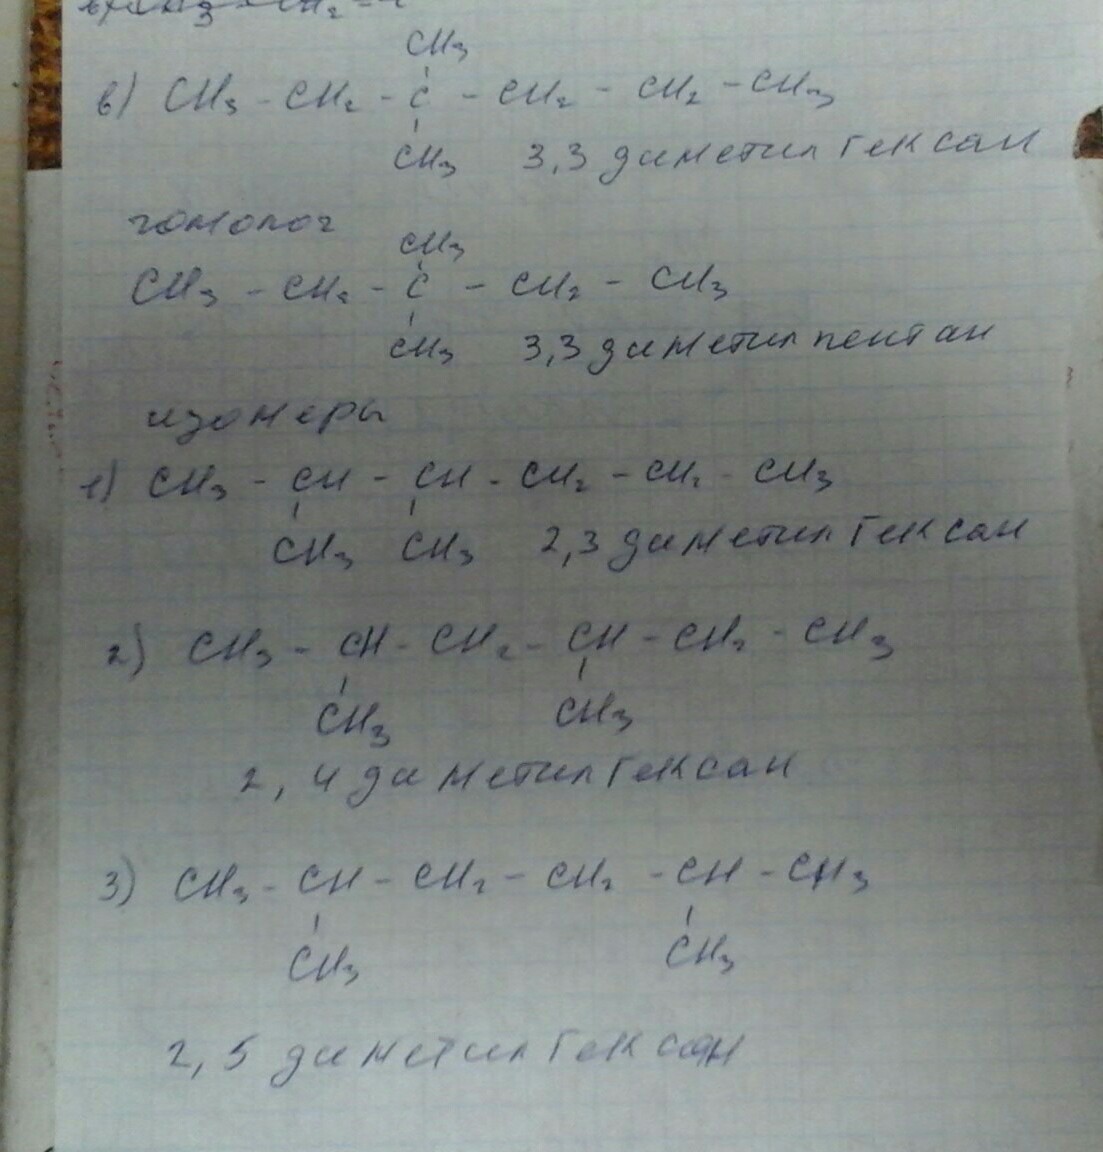 CH3
в) CH3 - CH2 - C - CH2 - CH2 - CH3
CH3 3,3 диметилгексан
гомолог
CH3
CH3 - CH2 - C - CH2 - CH3
CH3 3,3 диметилпентан
изомеры
1) CH3 - CH - CH - CH2 - CH2 - CH3
CH3 CH3 2,3 диметилгексан
2) CH3 - CH - CH2 - CH - CH2 - CH3
CH3 CH3
2,4 диметилгексан
3) CH3 - CH - CH2 - CH2 - CH - CH3
CH3 CH3
2,5 диметилгексан